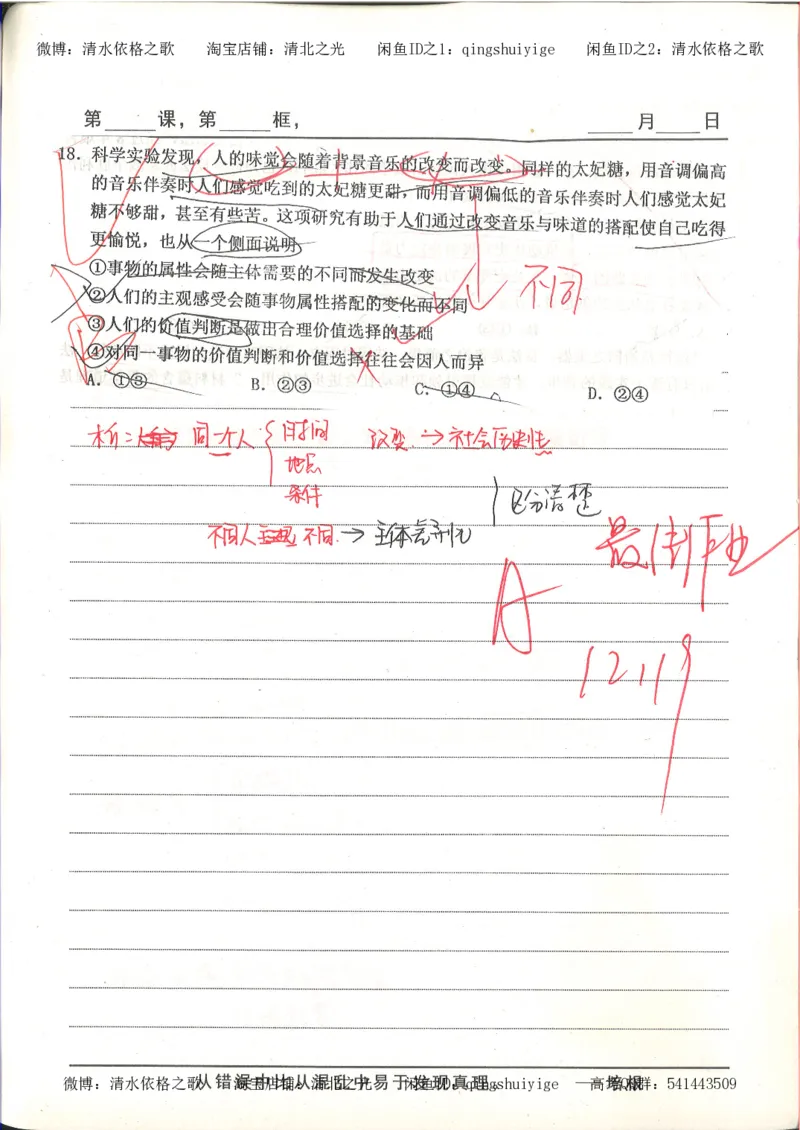 微博：清水依格之歌 淘宝店铺：清北之光 闲鱼ID之1：qingshuiyige 闲鱼ID之2：清水依格之歌
第____课，第____框， ____月____日
18. 科学实验发现，人的味觉会随着背景音乐的改变而改变。同样的太妃糖，用音调偏高
的音乐伴奏时人们感觉吃到的太妃糖更甜，而用音调偏低的音乐伴奏时人们感觉太妃
糖不够甜，甚至有些苦。这项研究有助于人们通过改变音乐与味道的搭配使自己吃得
更愉悦，也从一个侧面说明
①事物的属性会随主体需要的不同而发生改变
②人们的主观感受会随事物属性搭配的变化而不同
不同
③人们的价值判断是做出合理价值选择的基础
④对同一事物的价值判断和价值选择往往会因人而异
A. ①③ B. ②③ C. ①④ D. ②④
析： 同一个人 时间 改变 → 社会历史性
地点
条件
区分清楚
不同人 不同 → 主体差异性
最佳作业
A
12.19
微博：清水依格之歌 淘宝店铺：清北之光 闲鱼ID：qingshuiyige 高 群：541443509
从错误中比从混乱中易于发现真理。 —培根